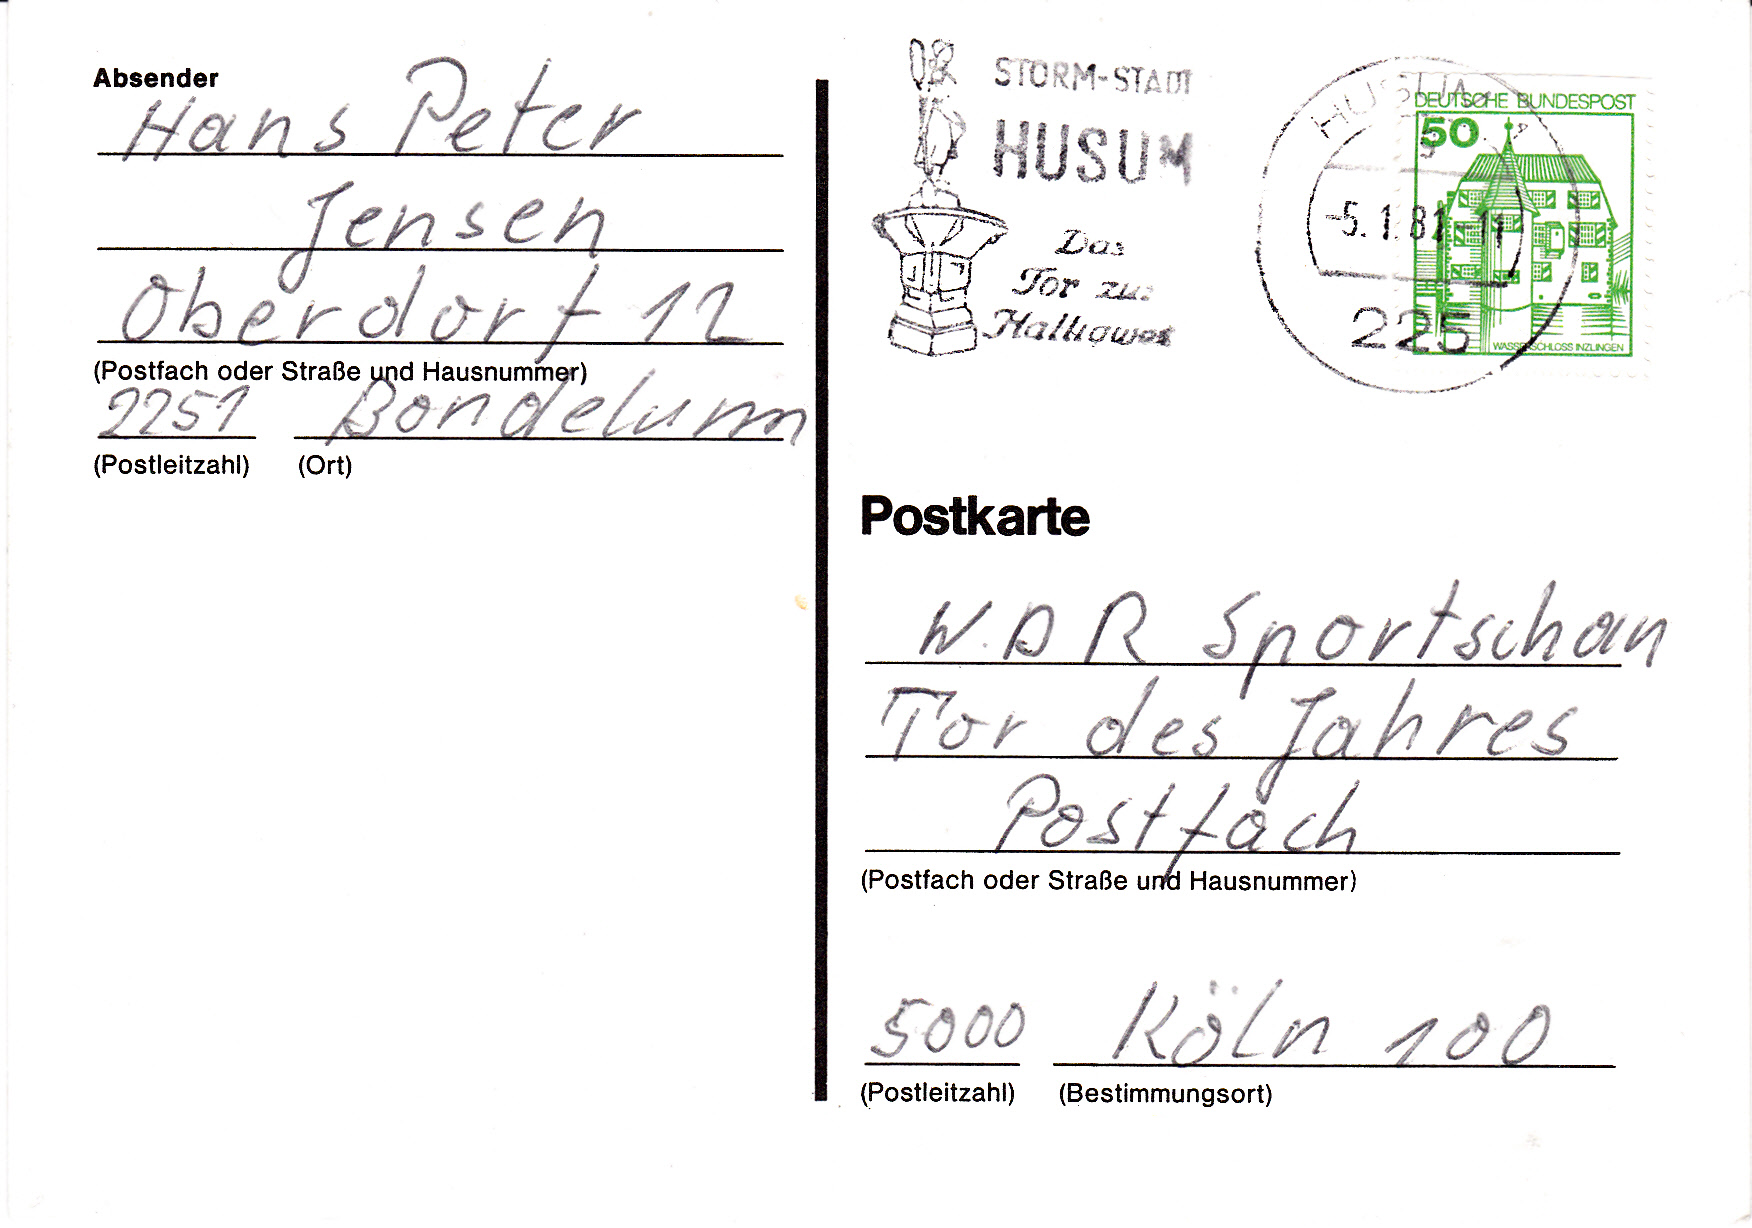 Absender
Hans Peter
Jensen
Oberdorf 12
(Postfach oder Straße und Hausnummer)
2251 Bondelum
(Postleitzahl) (Ort)
STORM-STADT
HUSUM
Das
Tor zur
HUSUM
-5.1.81-11
225
DEUTSCHE BUNDESPOST
50
WASSERSCHLOSS INZLINGEN
Postkarte
W.D R Sportschau
Tor des Jahres
Postfach
(Postfach oder Straße und Hausnummer)
5000 Köln 100
(Postleitzahl) (Bestimmungsort)